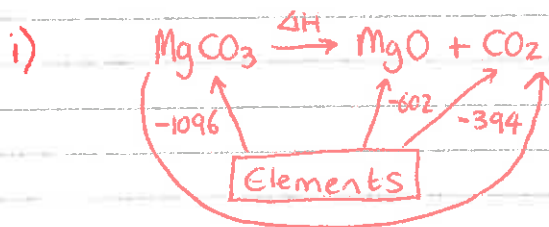 i)
ΔH
MgCO₃ → MgO + CO₂
-1096
-602
-394
Elements